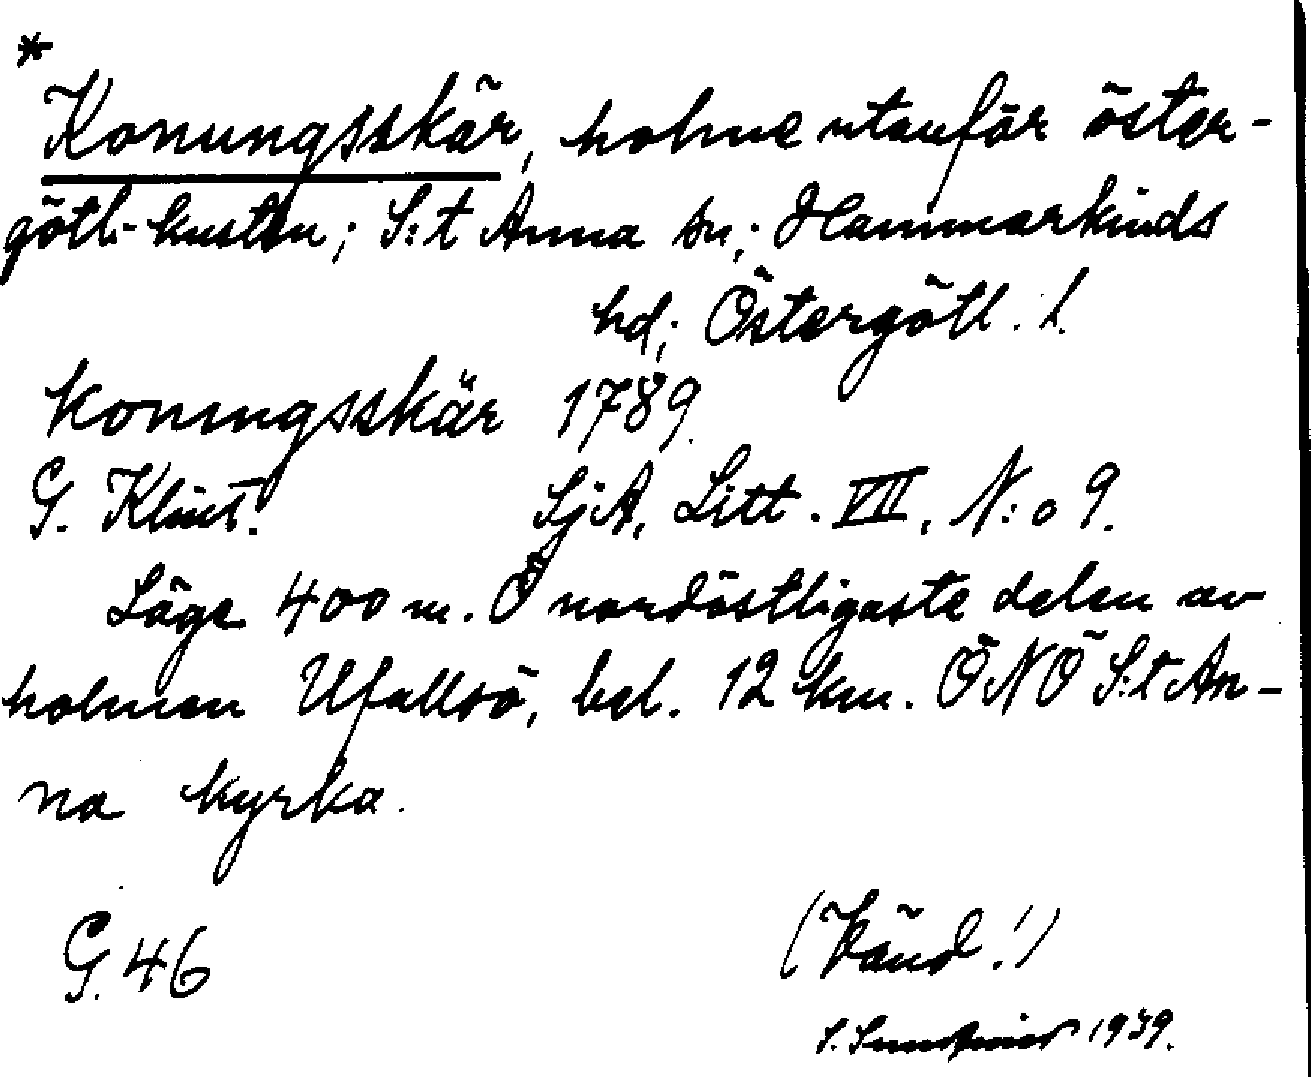 *
Konungsskär, holme utanför öster-
götl. kusten; S:t Anna sn; Hammarkinds
hd; Östergötl. l.
Koningsskär 1789.
G. Klint. SjA, Litt. VII, N:o 9.
Läge 400 m. Ö nordöstligaste delen av
holmen Ufallsö, bel. 12 km. ÖNÖ S:t An-
na kyrka.
G. 46 (Vänd!)
S. 1939.